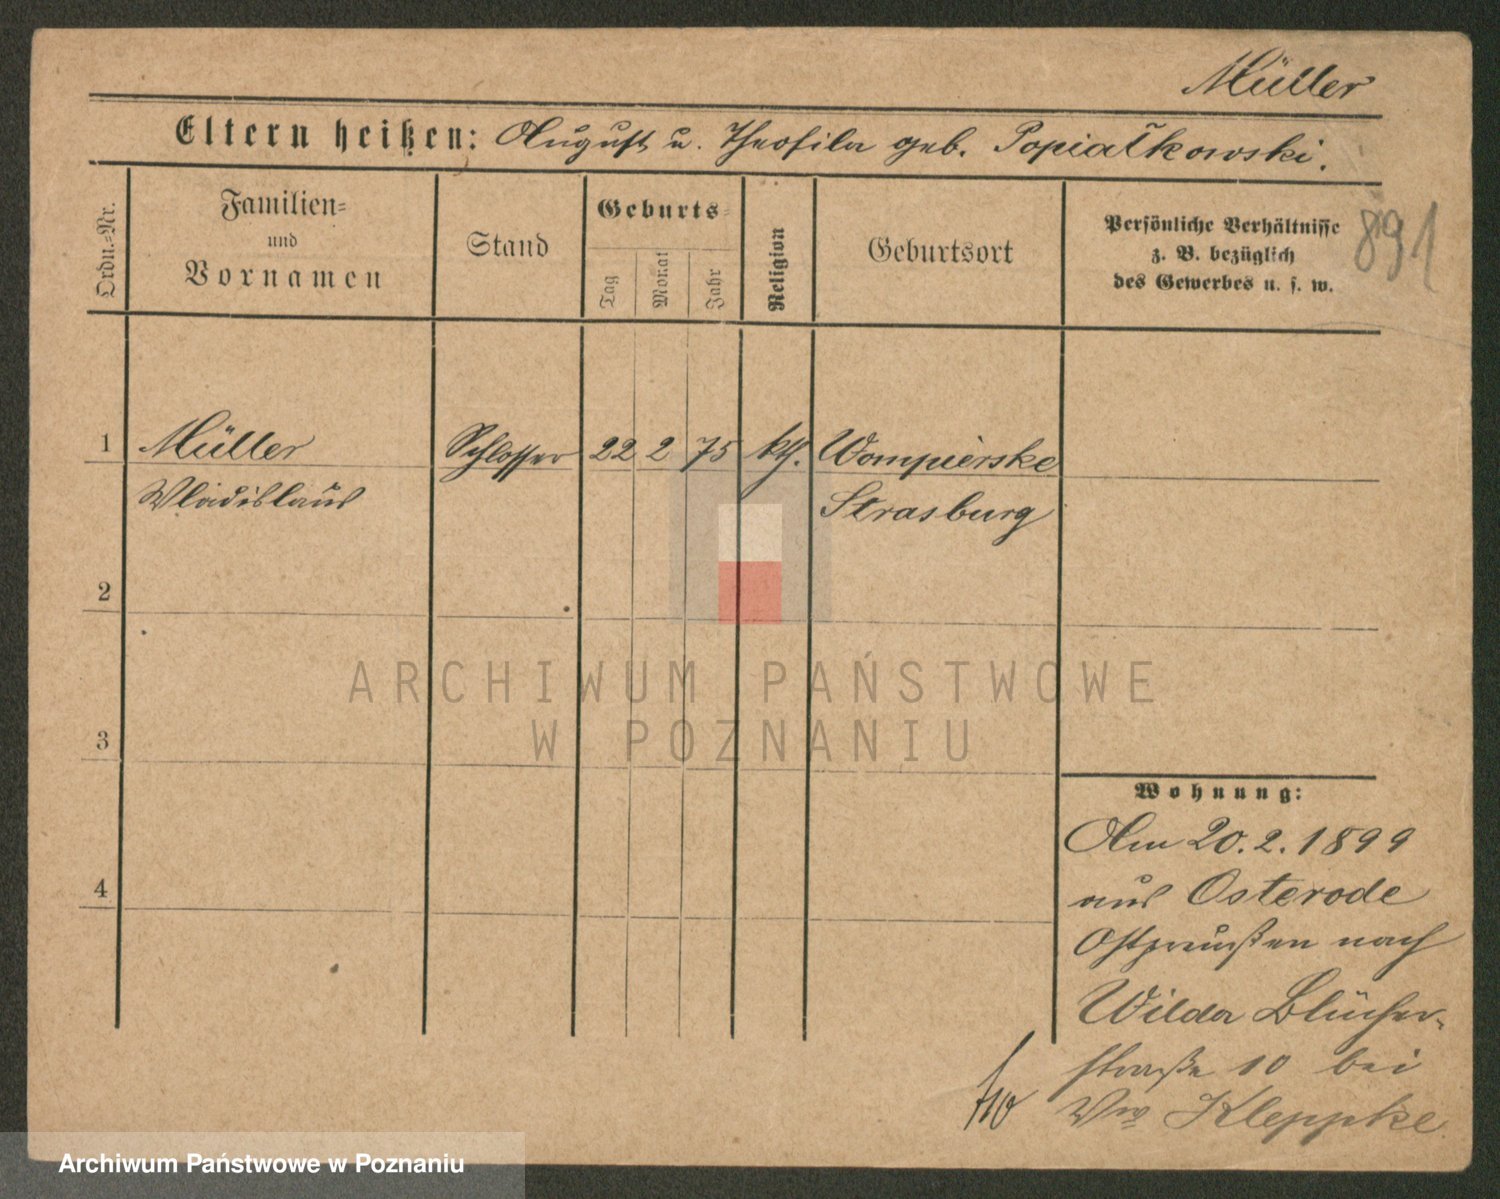 Müller
Eltern heißen: August u. Theofila geb. Popiałkowski.
Ordn.=Nr.
Familien=
und
Vornamen
Stand
Geburts=
Tag
Monat
Jahr
Religion
Geburtsort
Persönliche Verhältnisse
z. B. bezüglich
des Gewerbes u. s. w.
891
1 Müller Schlosser 22 2 75 kth. Wompierske
Wladislaus Strasburg
2
3
4
ARCHIWUM PAŃSTWOWE
W POZNANIU
Wohnung:
Am 20.2.1899
aus Osterode
Ostpreußen nach
Wilda Blücher-
straße 10 bei
Ww Kleppke
Archiwum Państwowe w Poznaniu